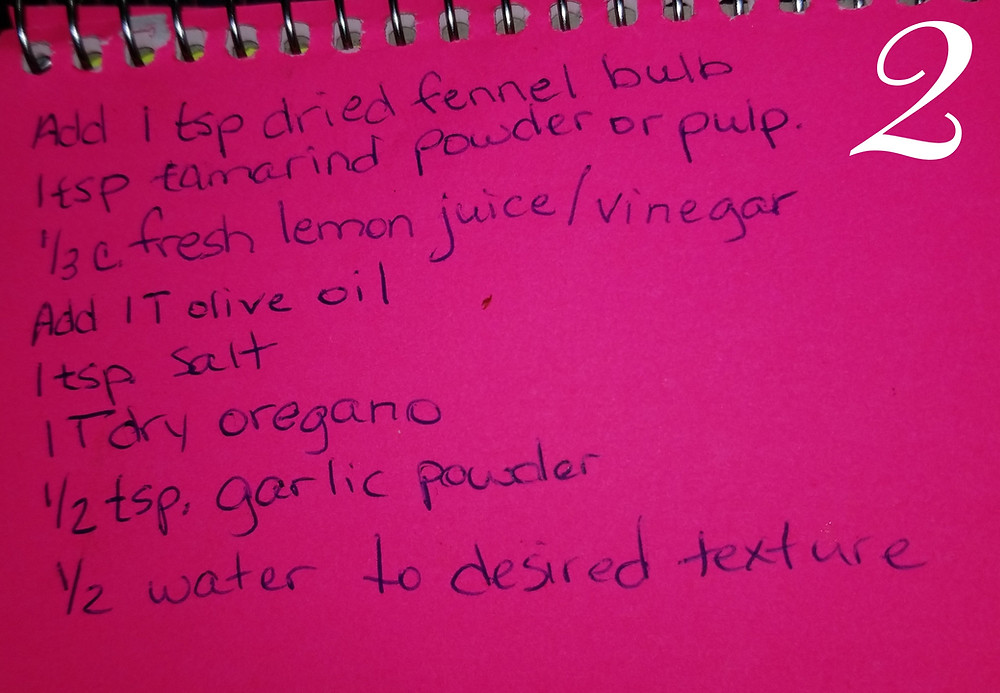 2
Add 1 tsp dried fennel bulb
1 tsp tamarind powder or pulp.
1/3 c. fresh lemon juice/vinegar
Add 1 T olive oil
1 tsp. salt
1 T dry oregano
1/2 tsp. garlic powder
1/2 water to desired texture